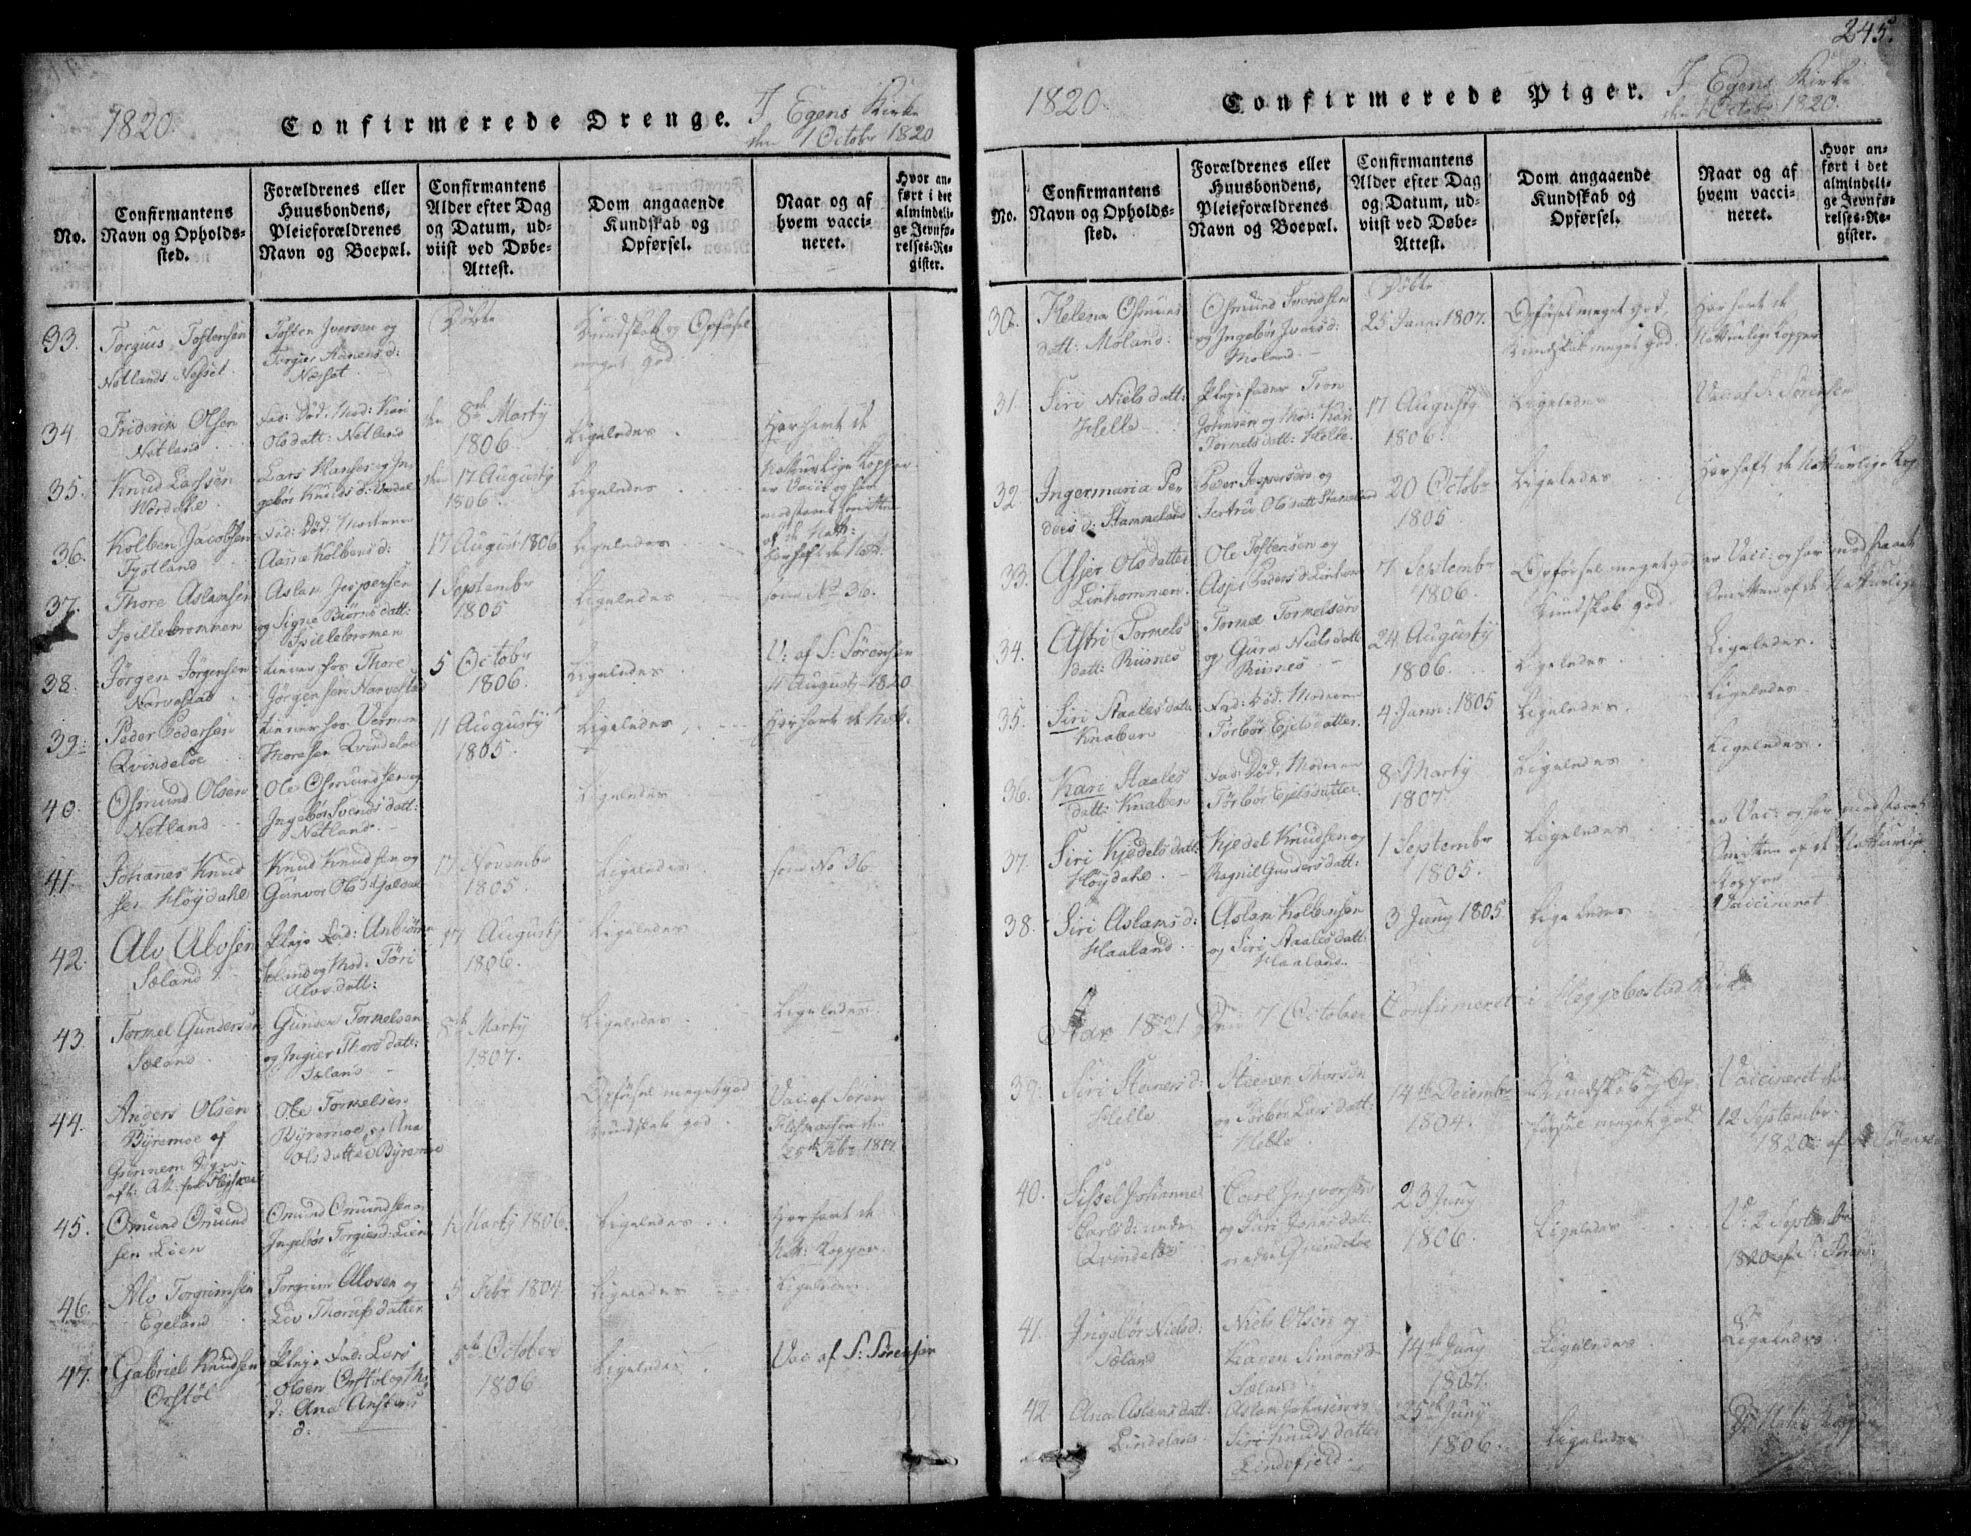 245.
1820.
Confirmerede Drenge.
I Egens Kirke
den 1 Octobr 1820
No.
Confirmantens
Navn og Opholds-
sted.
Forældrenes eller
Huusbondens,
Pleieforældrenes
Navn og Boepæl.
Confirmantens
Alder efter Dag
og Datum, ud-
viist ved Døbe-
Attest.
Dom angaaende
Kundskab og
Opførsel.
Naar og af
hvem vacci-
neret.
Hvor an-
ført i det
almindeli-
ge Jevnfø-
relses-Re-
gister.
33.
Torguis Tostensen
Netlands Nesset
Tosten Iversen og
Næset
Døbte
Kundskab og Opførsel
meget god.
34
Friderik Olsen
Netland
Fad: Død. Mod: Kari
Olsdatt: Netland
den 8de Marty
1806.
Ligeledes.
Har havt de
Naturlige Kopper
35.
Knud Larsen
Lars Hansen og In-
gebor Knuds d:
den 17 Augusty
1806.
Ligeledes
er Vacc: og har
modstaaet Smitten
af de Natt:
36.
Kolben Jacobsen
Fad: Død. Moderen
Aasne Kolbens d:
17 August 1806
Ligeledes
Har haft de Natt:
37.
Thore Aslamsen
Spillebrommen
Aslam Jespersen
og Signe Biørns datt:
Spillebromen
1 Septembr
1805
Ligeledes
som No 36.
38.
Jørgen Jørgensen
Narvestad
tiener hos Thore
Jørgensen Narvestad
5 Octobr
1806.
Ligeledes.
V: af S: Sørensen
11 Augusty 1820
39.
Peder Pedersen
Qvindeloe
tiener hos
Thoresen Qvindeloe
11 Augusty
1805.
Ligeledes
Har havt de Natt:
40.
Osmund Olsen
Netland
Ole Osmundsen og
Ingebor Svends datt:
Netland.
Ligeledes
41.
Johanes Knud
sen Høydahl
Knud Knudsen og
Gunvor Ols d:
17 Novembr
1805.
Ligeledes
som No 36
42.
Alv Alvsen
Sæland
Pleje Fad: Anbiørn
Sæland og Mod: Tori
Alvs datt:
17 Augusty
1806.
Ligeledes
43.
Tormel Gundersen
Sæland
Gunder Tormelsen
og Ingier Thors datt:
Sæland
8de Marty
1807.
Ligeledes
Ligeledes
44.
Anders Olsen
Byremoe af
Ole Tormelsen
Byremoe og Ana
Olsdatter Byremoe
Opførsel meget god
Kundskab god
Vac: af Søren
45.
Omund Omund
sen Lien
Omund Omundsen og
Ingebor Torgiers d: Lien
Marty 1806.
Ligeledes
Har havt de
Natt: Kopper
46.
Alv Torgrimsen
Egeland
Torgrim Alvsen og
Liv Thorufsdatter
5 Febr 1804
Ligeledes
Ligeledes
47.
Gabriel Knudsen
Orstøl
Pleje Fad: Lars
Olsen Orstøl og
d: Ana
d.
5te October
1806
Ligeledes
Vac af S: Sørensen
1820.
Confirmerede Piger.
I Egens Kirke
den 1 Octobr 1820.
No.
Confirmantens
Navn og Opholds-
sted.
Forældrenes eller
Huusbondens,
Pleieforældrenes
Navn og Boepæl.
Confirmantens
Alder efter Dag
og Datum, ud-
viist ved Døbe-
Attest.
Dom angaaende
Kundskab og
Opførsel.
Naar og af
hvem vacci-
neret.
Hvor an-
ført i det
almindeli-
ge Jevnfø-
relses-Re-
gister.
30.
Helena Osmuns
datt: Moland:
Osmund Svendsen
og Ingebor Ivers d:
Moland.
Døbte
25 Janr: 1807.
Opførsel meget god,
Kundskab meget god.
Har havt de
Natturlige Kopper
31.
Siri Niels datt:
Helle
Plejefader Tron
Johnsen og Mod: Kari
Tormels datt: Helle.
17 Augusty
1806.
Ligeledes
Vac af S: Sørensen
32.
Ingermaria Pe
ders d: Stammeland
Peder Jespersen og
Olsdatt Stameland
20 Octobr
1805
Ligeledes
Har haft de Natturlige Kop
33.
Asjer Olsdatter
Linkommen.
Ole Tostensen og
Peders d:
7 Septembr
1806.
Opførsel meget god
Kundskab god.
er Vacc: og har modstaaet
Smitten af de Natturlige
34.
Astri Tormels
datt: Risnes
Tormel Tormelsen
og Guro Niels datt:
Risnes
24 Augusty
1806.
Ligeledes
Ligeledes.
35.
Siri Staalesdatt:
Knaben
Fad: Død. Moderen
Torbor Ejelsdatter.
4 Janr: 1805
Ligeledes.
Ligeledes
36.
Kari Staales
datt: Knaben
Fad: Død. Moderen
Torbor Ejelsdatter.
8 Marty
1807
Ligeledes
Ligeledes.
37.
Siri Kjedels datt:
Høydahl
Kjedel Knudsen og
Ragnil Gunders datt:
1 Septembr
1805.
Ligeledes
er Vac: og har modstaaet
Smitten af de Natturlige
Kopper
38.
Siri Aslams d:
Haaland
Aslam Kolbensen
og Siri Staalesdatt:
Haaland.
3 Juny 1805
Ligeledes
Vaccineret
Aar 1821 Den 7 October Confirmeret i Heggebostad Kirke
39.
Siri Steners d:
Helle
Steener Thorsen
og Torbor Lars datt:
Helle
14de Decembr
1804.
Kundskab og Op-
førsel meget god
Vaccineret den
12 Septembr
1820 af S Sørensen
40.
Sissel Johanne
Carls d: nedre
Qvindeloe
Carl Ingvorsen
og Siri Johns datt:
nedre Qvindeloe
23 Juny
1806.
Ligeledes
V: 2 Septembr
1820 af S: Sørens:
41.
Ingebor Niels d:
Sæland
Niels Olsen og
Karen Simons d:
Sæland
14de Juny
1807.
Ligeledes
Ligeledes
42.
Ana Aslams datt:
Lindeland
Aslam Johnsen og
Siri Knuds datter
Lindefield.
25de Juny
1806.
Ligeledes